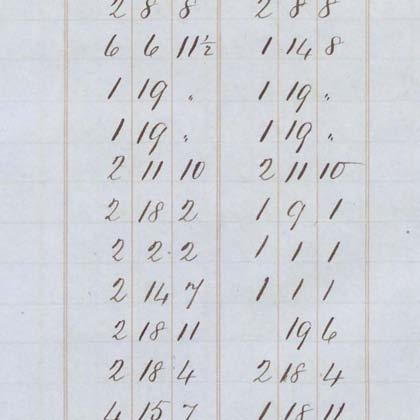 2 8 8 2 8 8
6 6 11½ 1 14 8
1 19 " 1 19 "
1 19 " 1 19 "
2 11 10 2 11 10
2 18 2 1 9 1
2 2 2 1 1 1
2 14 7 1 1 1
2 18 11 19 6
2 18 4 2 18 4
4 15 7 1 18 11